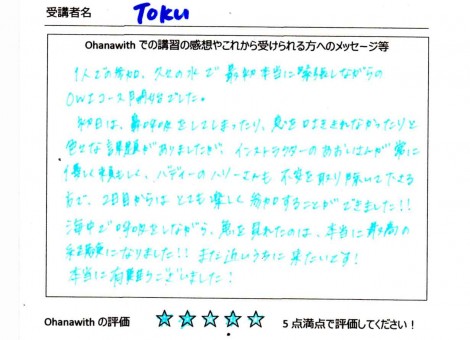 受講者名 TOKU
Ohanawith での講習の感想やこれから受けられる方へのメッセージ等
1人での参加、久々の水で最初本当に緊張しながらの
OWコース開始でした。
初日は、鼻呼吸をしてしまったり、息を吐ききれなかったりと
色々な課題がありましたが、インストラクターのあおいさんが常に
優しく頼もしく、バディーのハリーさんも不安を取り除いて下さる
方で、2日目からはとても楽しく参加することができました!!
海中で呼吸をしながら、魚を見れたのは、本当に最高の
経験になりました!! また近いうちに来たいです!
本当に有難うございました!
Ohanawith の評価 ☆☆☆☆☆ 5 点満点で評価してください!